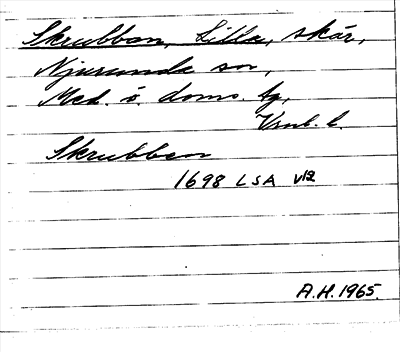 Skrubban, Lilla, skär,
Njurunda sn,
Med. ö. doms. tg,
Vnl. l.
Skrubben
1698 LSA V12
A.H. 1965.